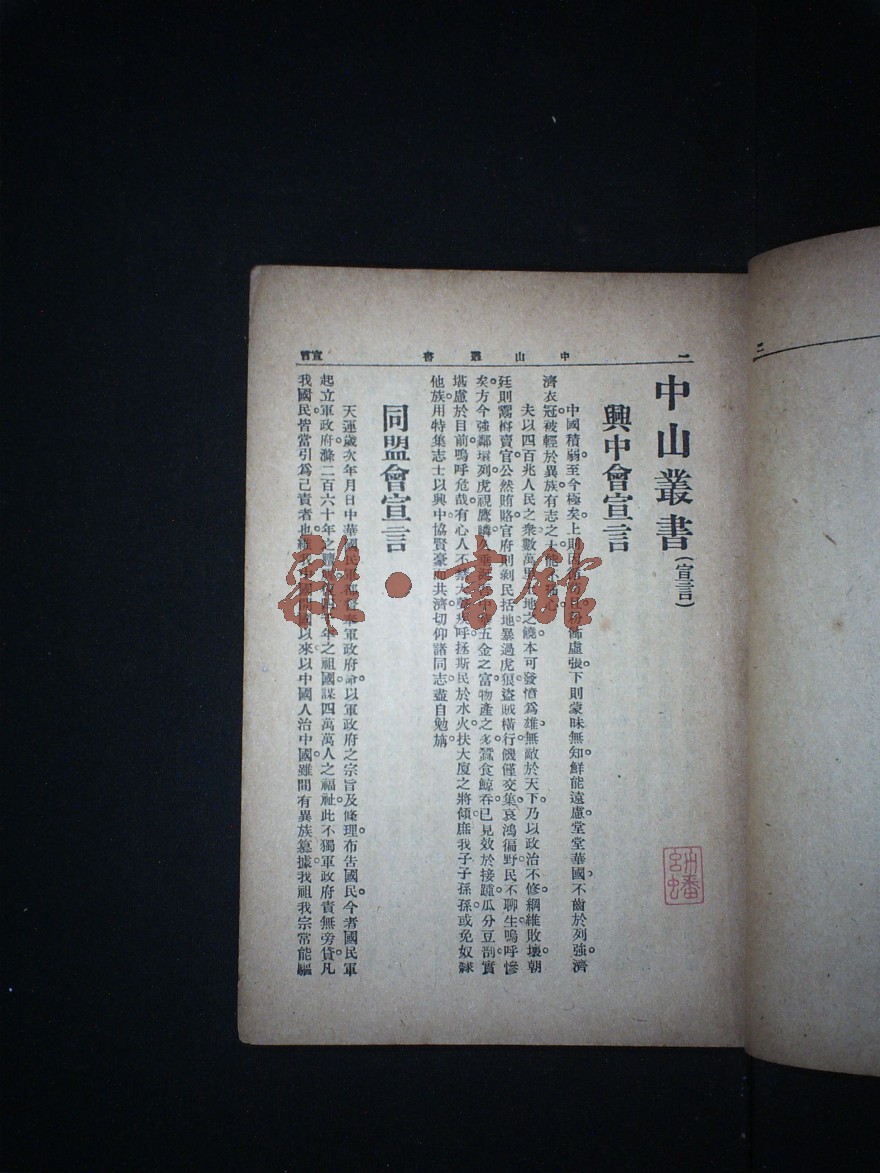 二
一
中山叢書
宣言
中山叢書(宣言)
興中會宣言
中國積弱。至今極矣。上則因苟且粉飾虛張。下則蒙昧無知。鮮能遠慮。堂堂華國。不齒於列強。濟
濟衣冠。被輕於異族。有志之士能不心。
夫以四百兆人民之衆。數萬里地之饒。本可發憤爲雄。無敵於天下。乃以政治不修。綱維敗壞。朝
廷則鬻爵賣官。公然賄賂。官府則剝民括地。暴過虎狼。盜賊橫行。饑饉交集。哀鴻徧野。民不聊生。嗚呼慘
矣。方今強鄰環列。虎視鷹瞵。垂五金之富。物產之多。蠶食鯨吞。已見效於接踵。瓜分豆剖。實
堪慮於目前。嗚呼危哉。有心人不禁大聲疾呼。拯斯民於水火。扶大廈之將傾。庶我子子孫孫。或免奴隸
他族。用特集志士以興中。協賢豪而共濟。切仰諸同志。盡自勉旃。
同盟會宣言
天運歲次年月日。中華國民軍都督奉軍政府命。以軍政府之宗旨及條理。布告國民。今者國民軍
起。立軍政府。滌二百六十年之年之祖國。謀四萬萬人之福祉。此不獨軍政府責無旁貸。凡
我國民。皆當引爲己責者也。中國國以來。以中國人治中國。雖間有異族篡據。我祖我宗常能驅
雜·書館